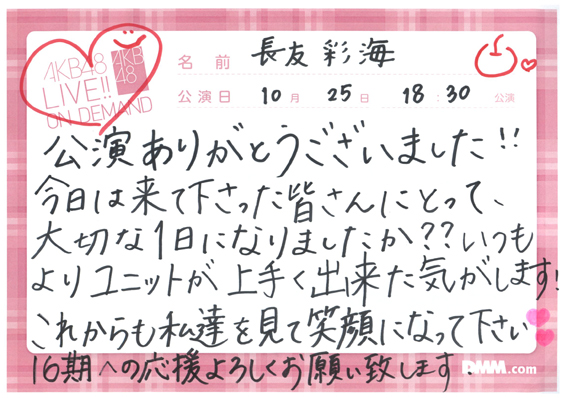 AKB48
LIVE!!
ON DEMAND
AKB
48
名前 長友彩海
公演日 10月 25日 18:30 公演
公演ありがとうございました!!
今日は来て下さった皆さんにとって、
大切な1日になりましたか??いつも
よりユニットが上手く出来た気がします!
これからも私達を見て笑顔になって下さい
16期への応援よろしくお願い致します.
DMM.com